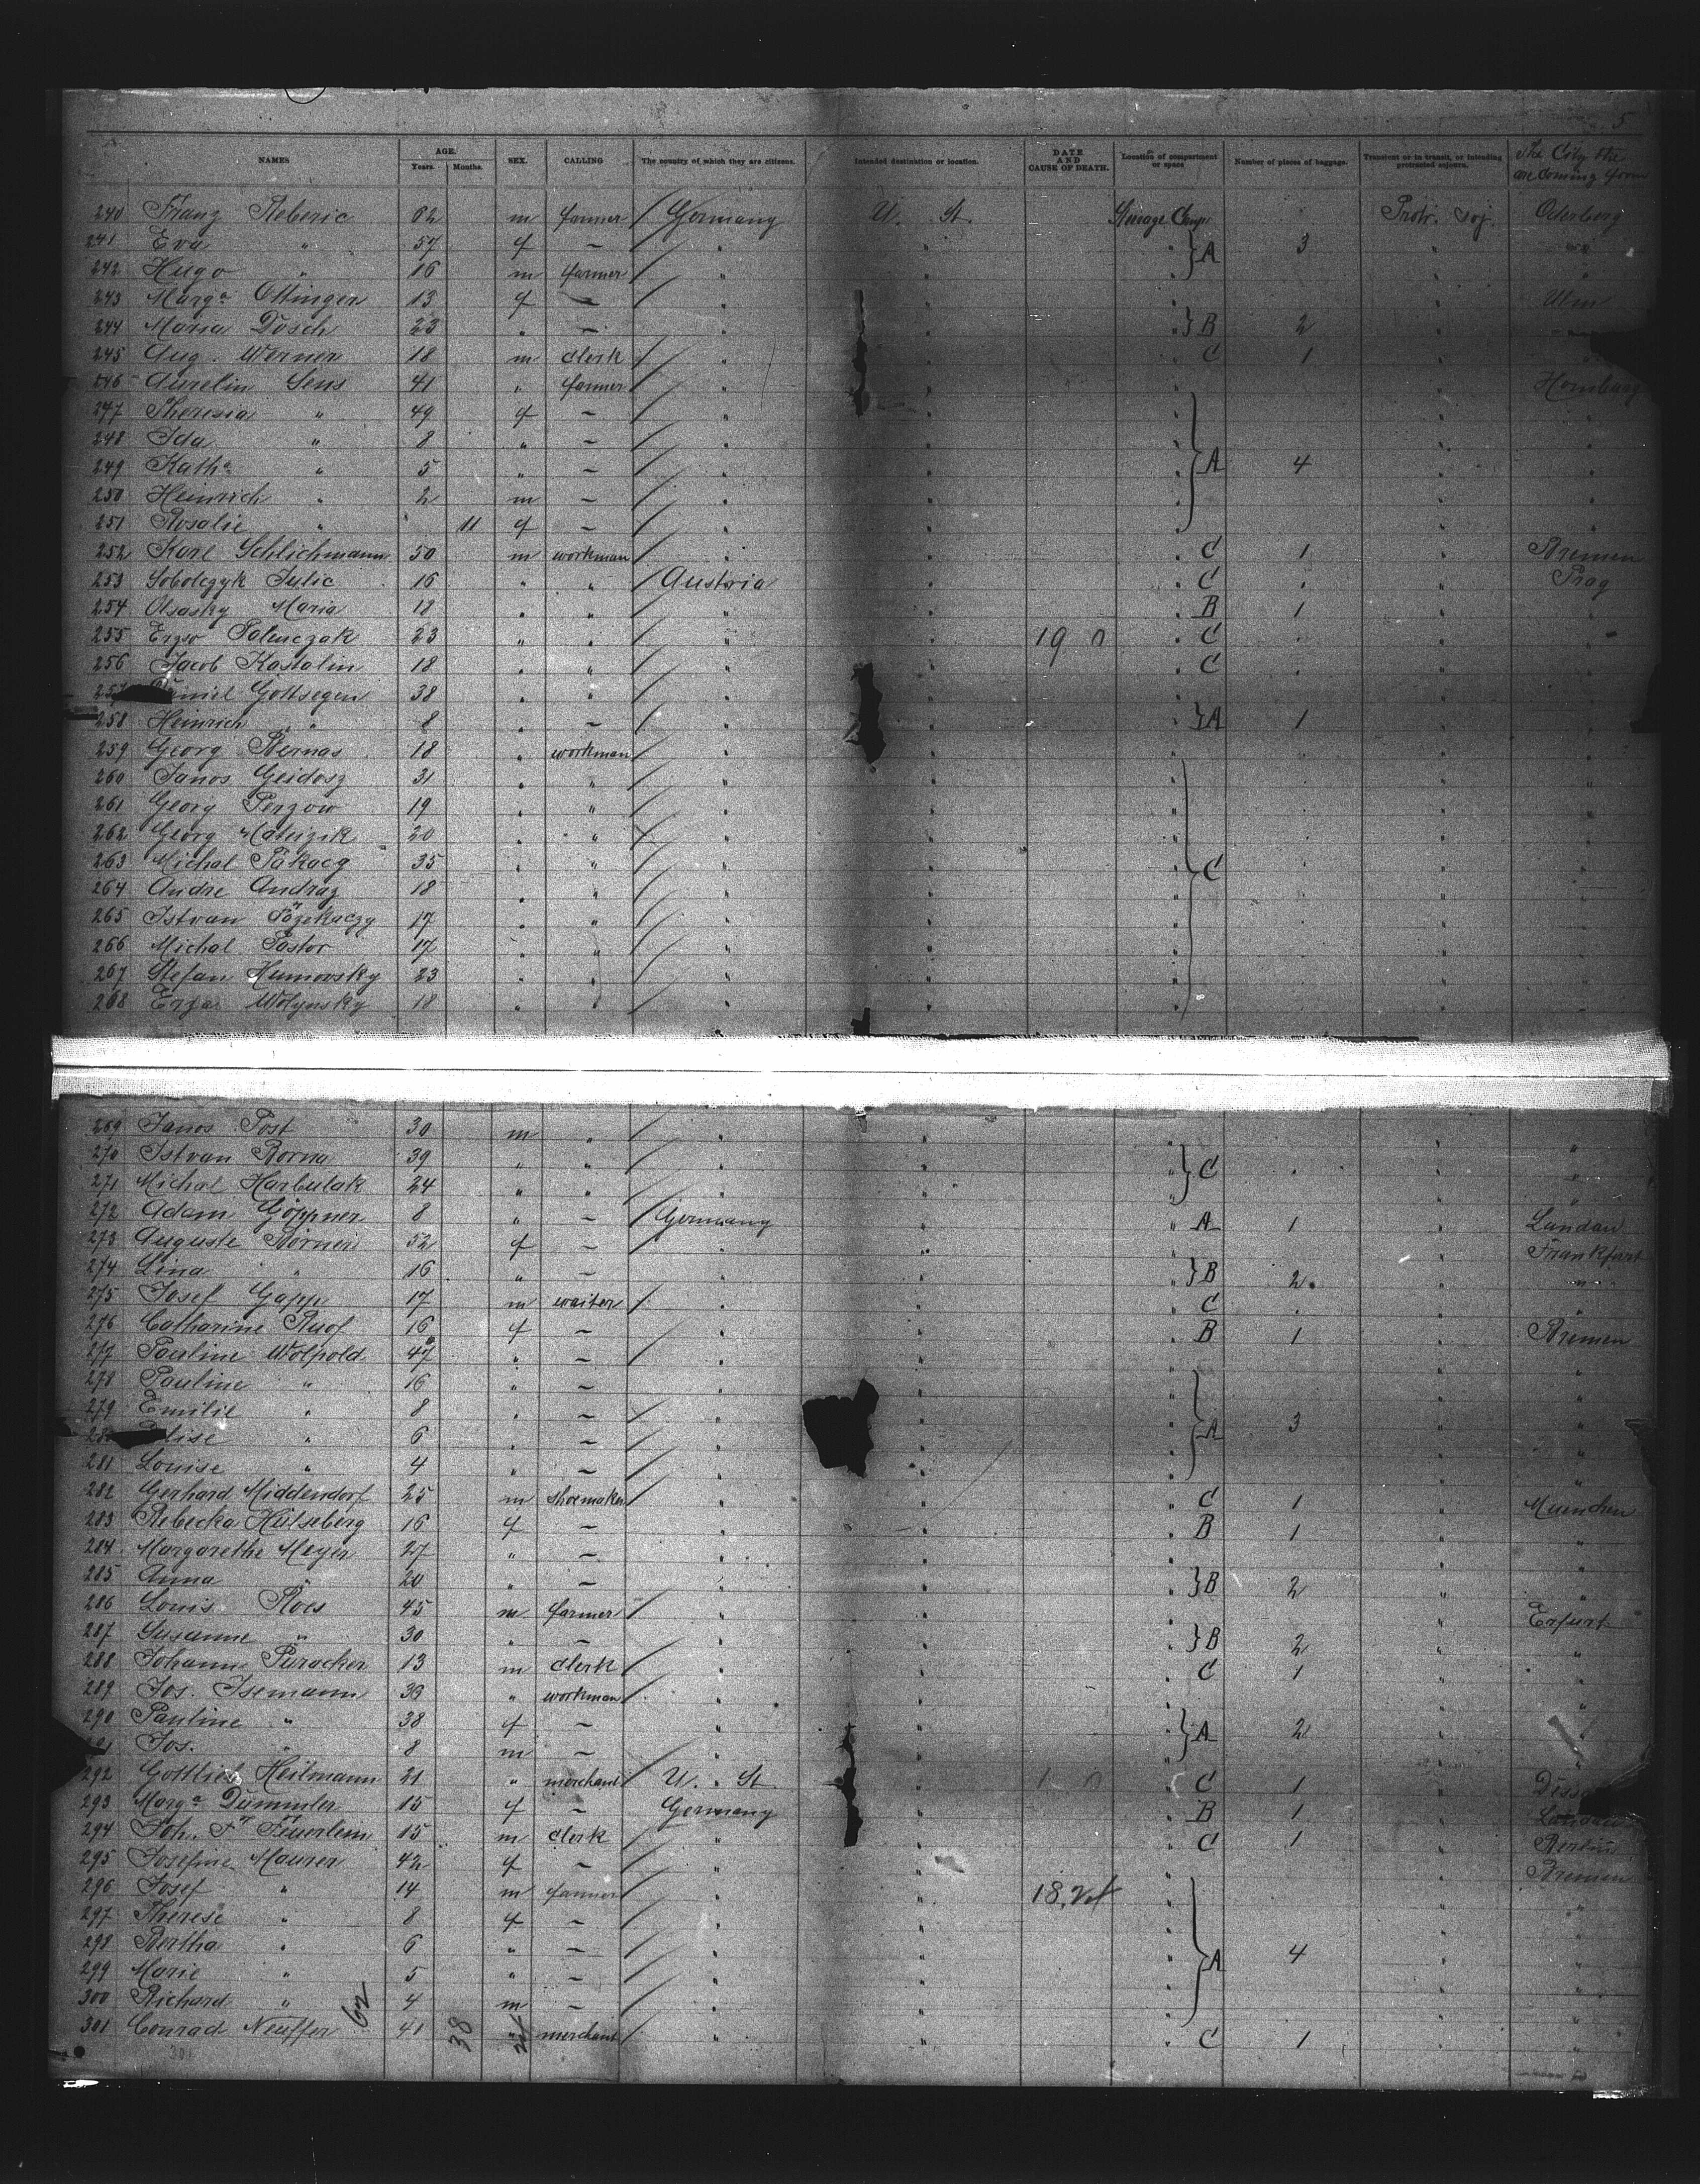 5
NAMES AGE. Years. Months. SEX. CALLING The country of which they are citizens. Intended destination or location. DATE AND CAUSE OF DEATH. Location of compartment or space Number of pieces of baggage. Transient or in transit, or intending protracted sojourn. The City the are coming from
240 Franz Reberic 62 m farmer / Germany U. St. Steerage Comp. Protr. soj. Oderberg
241 Eva " 57 f — / " " " } A 3 " "
242 Hugo " 16 m farmer / " " " " "
243 Marg.a Ottinger 13 f — / " " " " Ulm
244 Maria Dosch 23 " — " " " } B 2 "
245 Aug. Werner 18 m clerk / " " " C 1 " "
246 Aurelin Sens 41 " farmer / " " " " Homburg
247 Theresia " 49 f — / " " " " "
248 Ida " 8 " — / " " " " "
249 Kath.a " 5 " — / " " " } A 4 " "
250 Heinrich " 2 m — / " " " " "
251 Rosalie " 11 f — / " " " " "
252 Karl Schlichmann 50 m workman / " " " C 1 " Bremen
253 Sobolczyk Julie 16 " " / Austria " " C " " Prag
254 Olsasky Maria 18 " " / " " " B 1 " "
255 Erzso 23 " " / " " 19 " C " " "
256 Jacob Kastalin 18 " " / " " " C " " "
257 Daniel Gottsegen 38 " " / " " " " "
258 Heinrich " 8 " — / " " " } A 1 " "
259 Georg Bernas 18 " workman / " " " " "
260 Janos Geidosz 31 " " / " " " " "
261 Georg Penzow 19 " " / " " " " "
262 Georg Mateizik 20 " " / " " " " "
263 Michal Takacg 35 " " / " " " } C " "
264 Andre Andraz 18 " " / " " " " "
265 Istvan 17 " " / " " " " "
266 Michal Pastor 17 " " / " " " " "
267 Stefan Humovsky 23 " " / " " " " "
268 Erza Wolynsky 18 " " / " " " " "
269 Janos Post 30 m " / " " " " "
270 Istvan Borna 39 " " / " " " } C " " "
271 Michal Harbulak 24 " " / " " " " "
272 Adam Göppner 8 " — / Germany " " A 1 " Landau
273 Auguste Börner 52 f — / " " " " Frankfurt
274 Lina " 16 " — " " " } B 2 " "
275 Josef Gapp 17 m waiter / " " " C " " "
276 Catharine Ruof 16 f — " " " B 1 " Bremen
277 Pauline Wolpold 47 " — / " " " " "
278 Pauline " 16 " — " " " " "
279 Emilie " 8 " — / " " " " "
280 Elise " 6 " — / " " " } A 3 " "
281 Louise " 4 " — / " " " " "
282 Gerhard Middendorf 25 m shoemaker / " " " C 1 " Muenchen
283 Rebecka Hülseberg 16 f — " " " B 1 " "
284 Margarethe Meyer 27 " — " " " " "
285 Anna " 20 " — " " " } B 2 " "
286 Louis Roes 45 m farmer / " " " " Erfurt
287 Susanne " 30 " — " " " } B 2 " "
288 Johann Puracker 13 m clerk / " " " C 1 " "
289 Jos. Isemann 39 " workman / " " " " "
290 Pauline " 38 f — " " " } A 2 " "
291 Jos. " 8 m — / " " " " "
292 Gottlieb Heilmann 21 " merchant / U. St " " C 1 "
293 Marg.a Dümmler 15 f — Germany " " B 1 " Landau
294 Joh. Fr. Feuerlein 15 m clerk / " " " C 1 " Berlin
295 Josefine Maurer 42 f — / " " " " Bremen
296 Josef " 14 m farmer / " " 18, " " "
297 Therese " 8 f — / " " " " "
298 Bertha " 6 " — / " " " } A 4 " "
299 Marie " 5 " — / " " " " "
300 Richard " 4 m — / " " " " "
301 Conrad Neuffer 41 " merchant / " " " C 1 " "
62 38
301